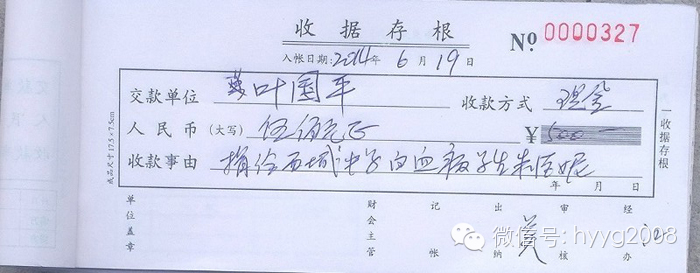 收据存根
No 0000327
入帐日期:2014年6月19日
交款单位 叶国平 收款方式 现金
人民币(大写) 伍佰元正 ¥500—
收款事由 捐给西城中学白血病学生朱
年 月 日
收据存根
成品尺寸17.5×7.5cm
单位盖章 财会主管 记帐 出纳 审核 经办
微信号: hyyg2008